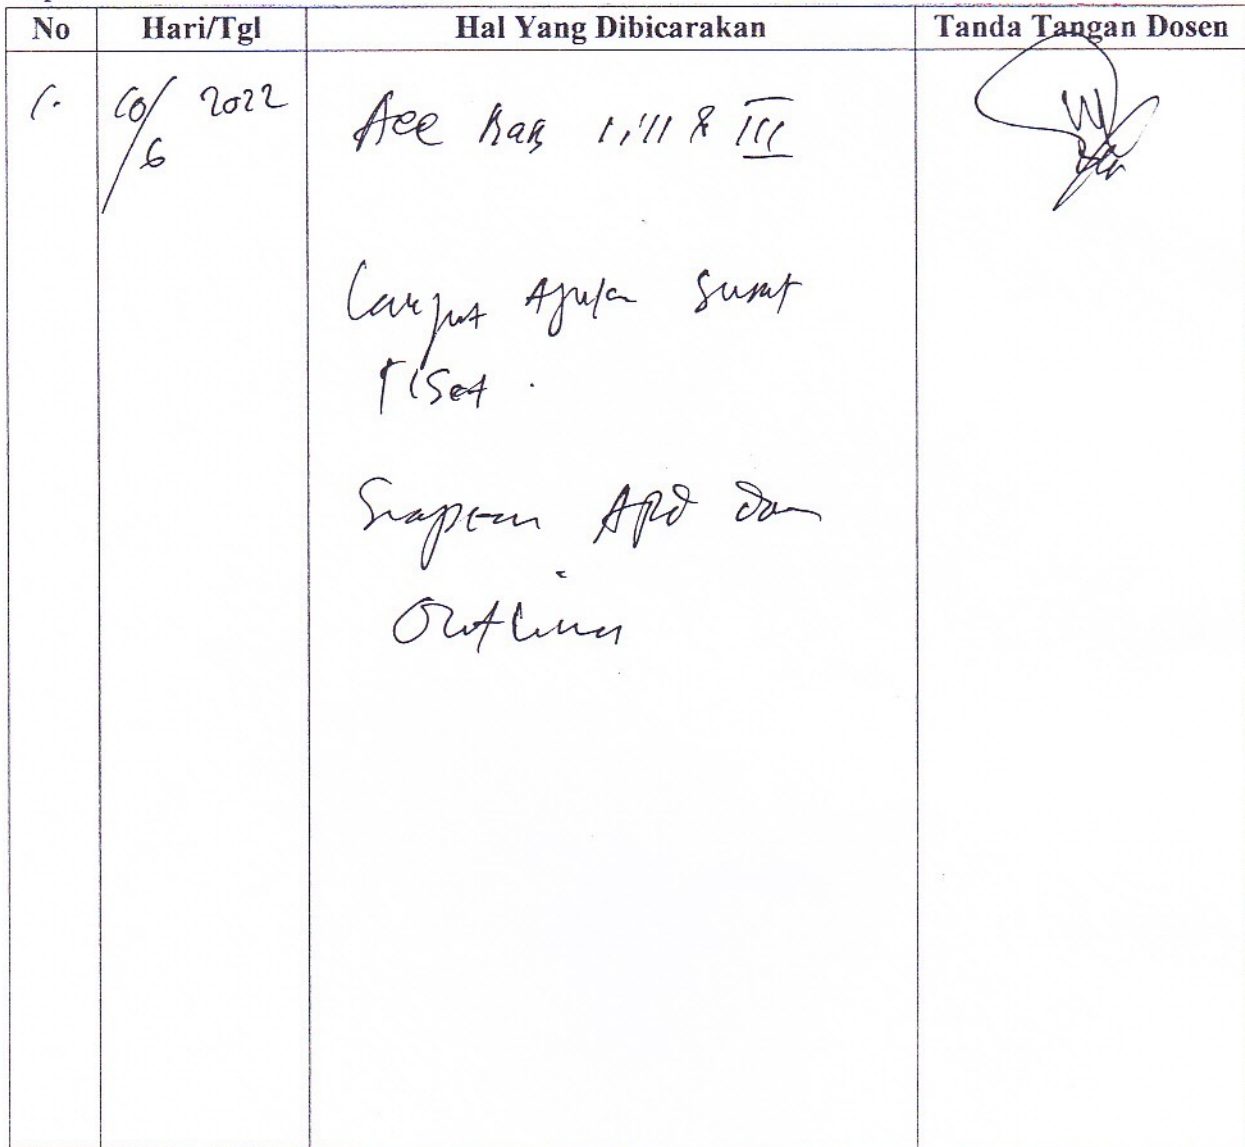 No Hari/Tgl Hal Yang Dibicarakan Tanda Tangan Dosen
1. 10/6 2022 Acc Bab I, II & III
Lanjut Ajukan Surat
riset.
Siapkan APD dan
Outline